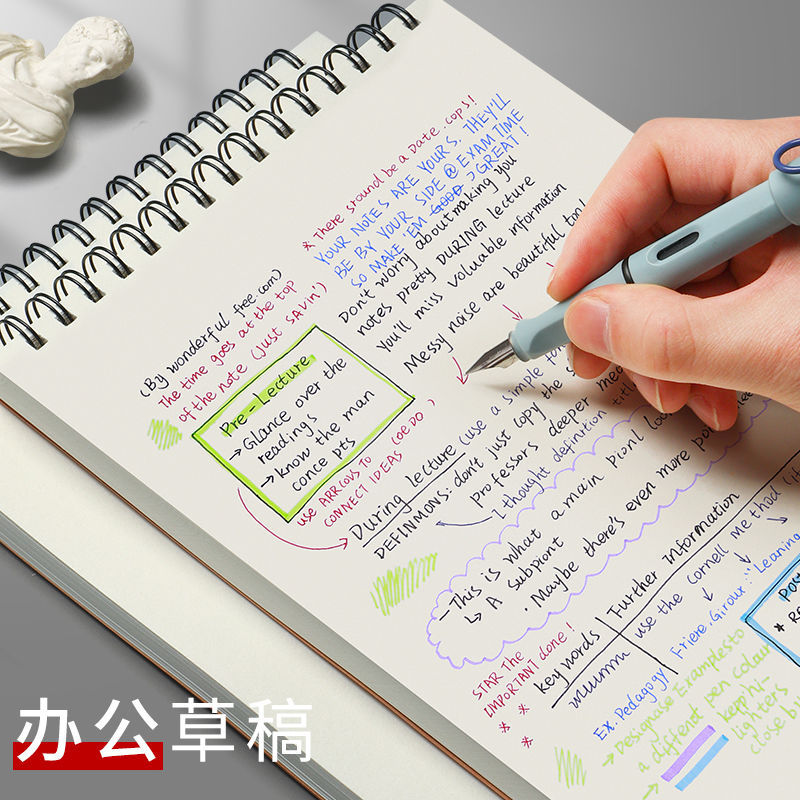 * There sround be a Date cops!
YOUR NOTES ARE YOURS. THEY'LL
BE BY YOUR SIDE @ EXAM TIME
SO MAKE 'EM GOOD GREAT!
Don't worry about making you
notes pretty DURING lecture
You'll miss voluable information
Messy noise are beautiful too!
(By wonderful free.com)
The time goes at the top
of the note (just SAvin')
Pre-Lecture
→ Glance over the
readings
→ know the man
conce pts
use ARRCOVS TO (OEDO)
CONNECT IDEAS
During lecture (use a simple
DEFINMONS: don't just copy the
professors deeper
I thought definition
- This is what a main pionl
↳ A subpiont
· Maybe there's even more
STAR The
IMPORTANT done!
* *
*
key words | Further Information
muumnm use the Cornell me thod
Ex. Pedagogy Friere, Giroux: "Leaning
→ Designaise Examples to
a differenot pen colour
→ keep hi-
lighters
close by
办公草稿